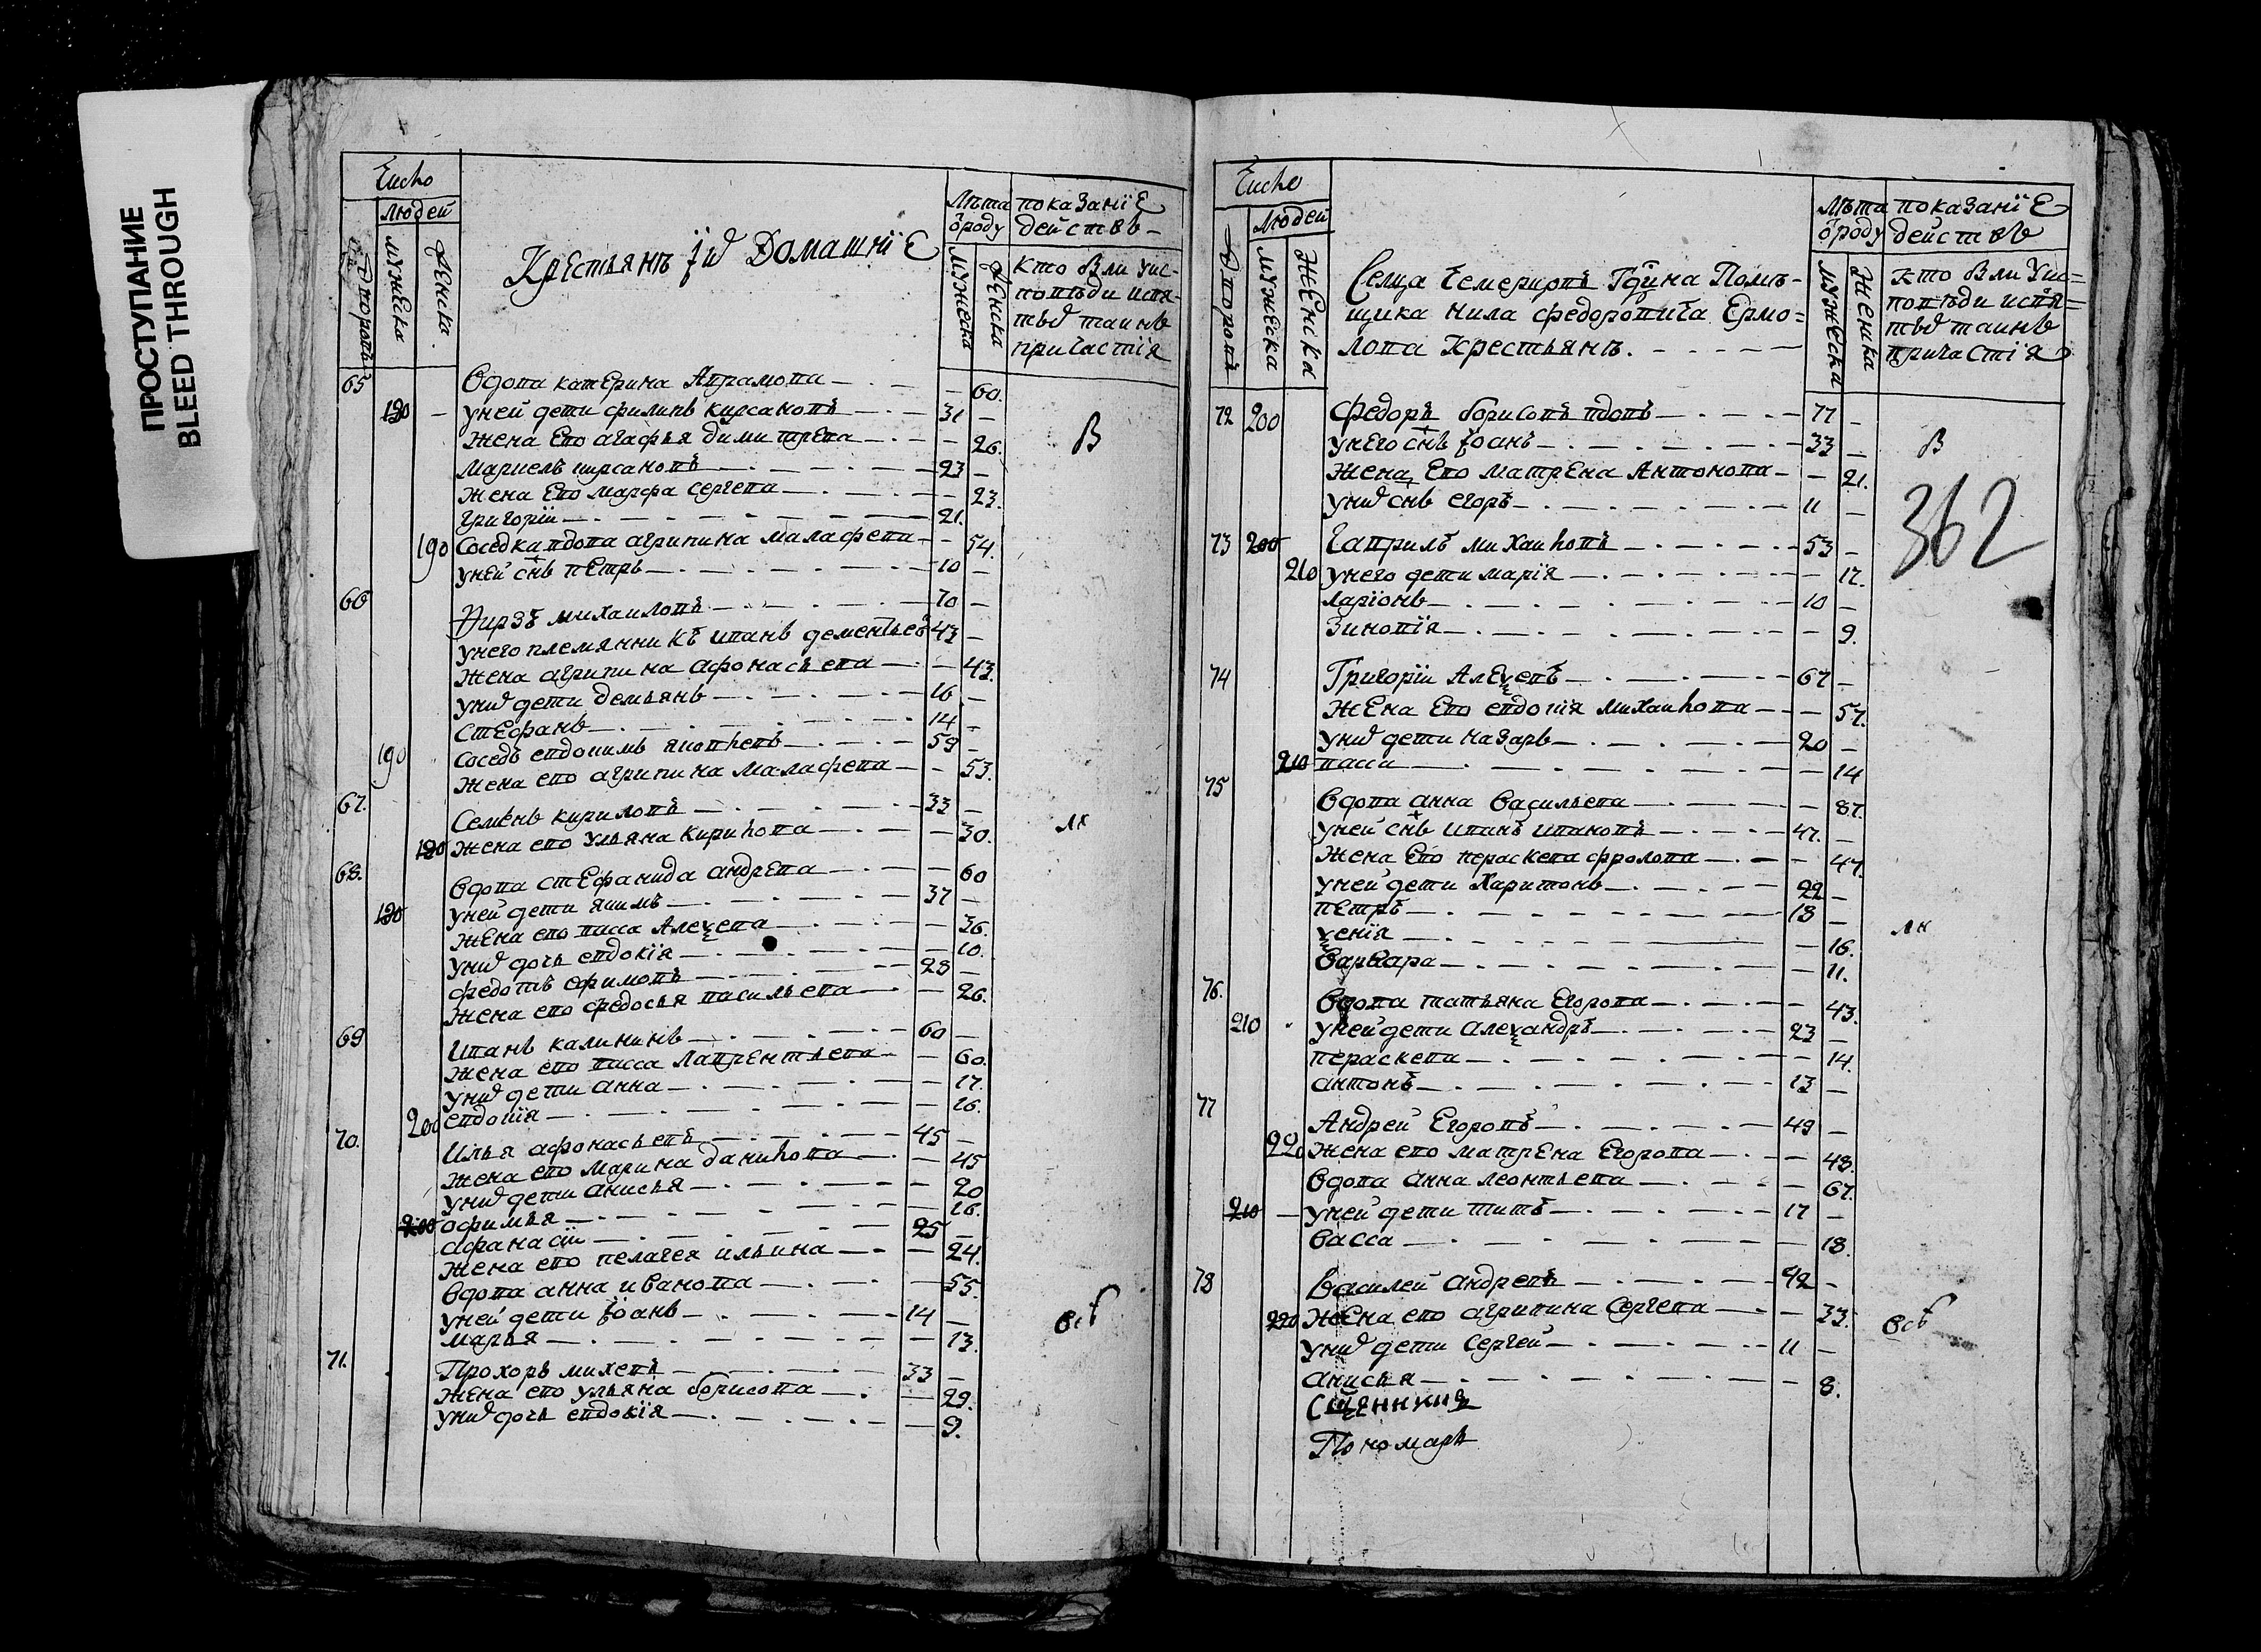 ПРОСТУПАНИЕ
BLEED THROUGH
Число
людей
мужеска
женска
Крестьянъ їхъ Домашнїе
Лѣта
ѿроду
мужеска
женска
показанїе
действъ
кто Были Уис-
поведи исвя-
тыхъ таинъ
причастия
65
Вдова катерина Аврамова 60.
190 уней дети филипъ кирсановъ 31
жена Его агафья димитрева 26. В
Маркелъ кирсановъ 23
жена Его марфа Сергева 23.
григорїи 21.
190 Соседка вдова агрипина малафева 54.
уней снъ петръ 10
66
Фирзъ михаиловъ 70
унего племянникъ иванъ дементьевъ 43
жена агрипина афонасьева 43.
унихъ дети демьянъ 16
Стефанъ 14
190 Соседъ евдокимъ яковлевъ 59
жена его агрипина малафева 53.
67.
Семенъ кириловъ 33
190 жена его ульяна кирилова 30.
68.
Вдова стефанида андрева 60
190 уней дети якимъ 37
жена его васса Алеѯева 36.
унихъ дочь евдокїя 10.
федотъ ефимовъ 28
жена его федосья васильева 26.
69
Иванъ калининъ 60
жена его васса лаврентьева 60.
унихъ дети анна 17.
200 евдокїя 16.
70.
Илья афонасьевъ 45
жена его марина данилова 45
унихъ дети анисья 20
200 офимья 16.
афанасїи 25
жена его пелагея ильина 24.
Вдова анна иванова 55.
уней дети Їоанъ 14
марья 13.
71.
Прохоръ михевъ 33
жена его ульяна борисова 29.
унихъ дочь евдокїя 9.
Число
людей
Дворовъ
мужеска
женска
Селца Чемериовъ Гдина Помѣ-
щика нила федоровича Ермо=
лова крестьянъ.
Лѣта
ѿроду
мужеска
женска
показанїе
действъ
кто Были Уис=
поведи исвя=
тыхъ таинъ
причастїя
72 200 Федоръ борисовъ вдовъ 77
унего снъ Їоанъ 33 В
жена Его матрена Антонова 21.
унихъ снъ егоръ 11
362
73 200 Гаврилъ михаиловъ 53
210 унего дети марїя 17.
ларїонъ 10
Зиновїя 9.
74 Григорїи Алеѯевъ 67
жена его евдокїя михаилова 57.
унихъ дети назаръ 20
210 васси 14
75
Вдова анна Васильева 87.
уней снъ иванъ ивановъ 47.
жена Его пераскева фролова 47.
уней дети Харитонъ 22
петръ 18
ѯенїя 16.
варвара 11.
76.
Вдова татьяна Егорова 43.
210 уней дети алеѯандръ 23
пераскева 14.
антонъ 13
77
Андрей Егоровъ 49
220 жена его матрена Егорова 48.
Вдова анна леонтьева 67.
210 уней дети титъ 17
Васса 18.
78
Василей андревъ 42
220 жена его агрипина Сергева 33.
унихъ дети Сергей 11
анисья 8.
Пономарь